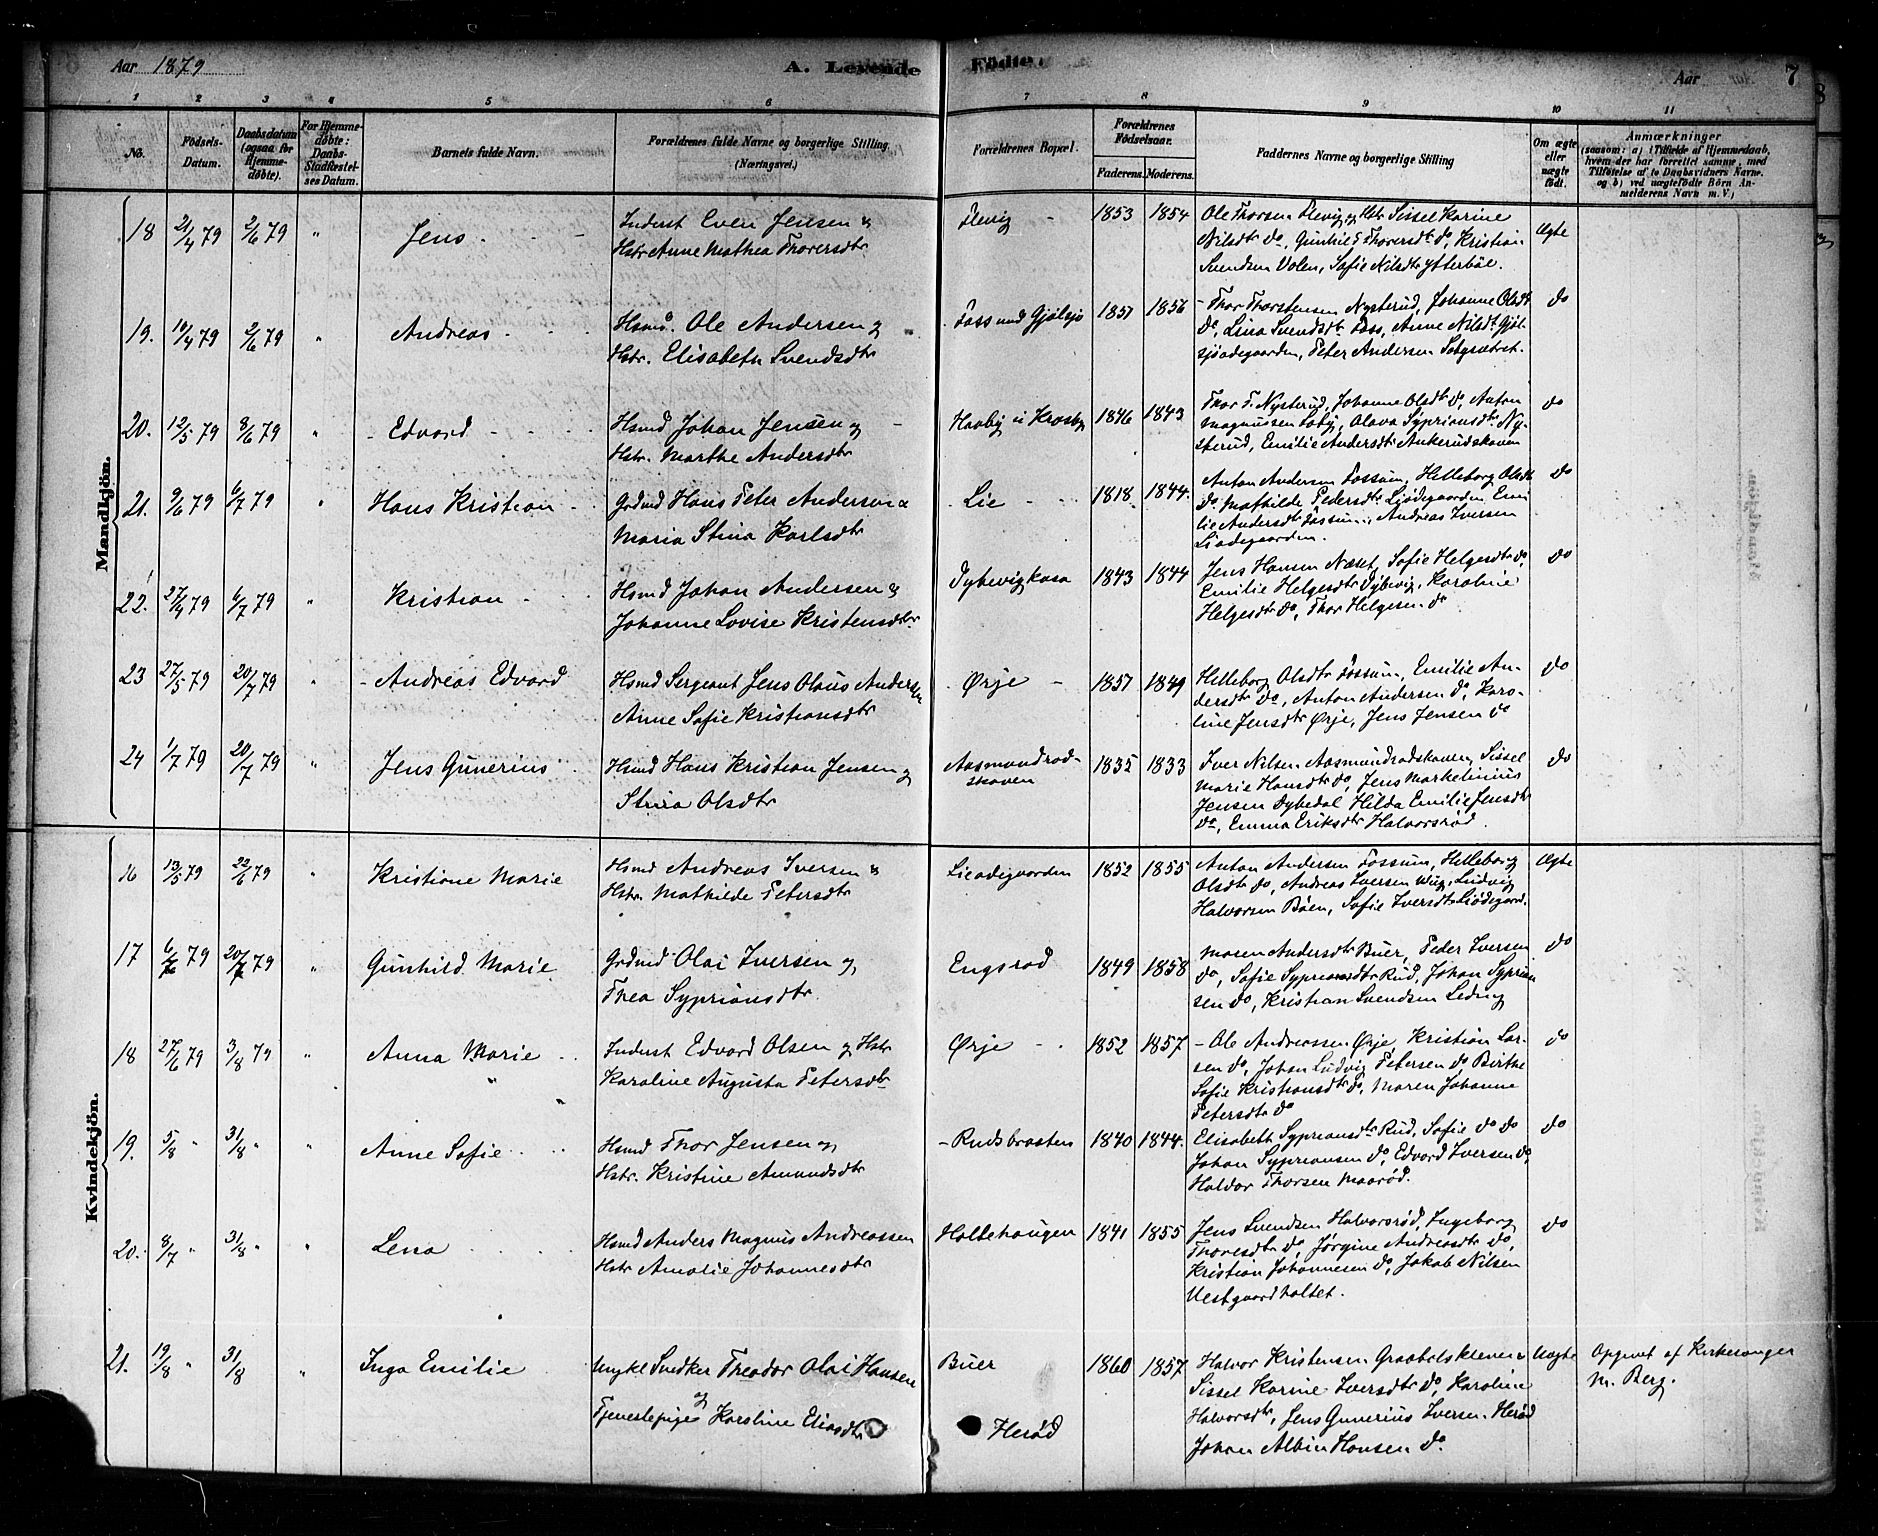 Aar 1879
A. Levende Födte.
Aar 7
1 2 3 4 5 6 7 8 9 10 11
No.
Födsels-Datum.
Daabsdatum (ogsaa for Hjemme-døbte).
For Hjemme-døbte: Daabs-Stadfæstel-ses Datum.
Barnets fulde Navn.
Forældrenes fulde Navne og borgerlige Stilling (Næringsvei.)
Forældrenes Bopæl.
Forældrenes Födselsaar.
Faderens. Moderens.
Faddernes Navne og borgerlige Stilling
Om ægte eller uægte födt.
Anmærkninger
(saasom: a) i Tilfælde af Hjemmedaab,
hvem der har forrettet samme, med
Tilföielse af to Daabsvidners Navne.
og b) ved uægtefödte Börn An-
melderens Navn m. V.)
Mandkjön.
18 21/4 79 2/6 79 " Jens
Inderst Even Jensen &
Hstr Anne Mathea Thoversdtr
Flevig 1853 1854
Ole Thorsen Flevig og Hstr Sissel Karine
Nilsdtr do, Gunhild Thoversdtr do, Kristian
Svendsen Volen, Sofie Nilsdtr Ytterböl.
Ægte
19. 19/4 79 2/6 79 " Andreas
Hsmd. Ole Andersen og
Hstr. Elisabeth Svendsdtr
Foss und Gjølsjø 1851 1856
Thor Thorstensen Nysterud, Johanne Olsdtr
do, Lina Svendsdtr Foss, Anne Nilsdtr Gjøl-
sjöødegaarden, Peter Andersen
do
20. 12/5 79 8/6 79 " Edvard
Hsmd Johan Jensen og
Hstr. Marthe Andersdtr
Haaby i Krosby 1846 1843
Thor T. Nysterud, Johanne Olsdtr do, Anton
Magnussen Joby, Olava Sypriansdtr Ny-
sterud, Emilie Andersdtr Ankerudskoven
do
21. 9/6 79 6/7 79 " Hans Kristian
Grdmd Hans Peter Andersen &
Maria Stina Karlsdtr
Lie 1818 1844.
Anton Andersen Fossum, Helleborg Olsdtr
do. Mathilde Pedersdtr Liødegaarden Emi
lie Andersdtr Fossum, Andreas Iversen
Liødegaarden.
do
22. 27/4 79 6/7 79 " Kristian
Hsmd Johan Andersen &
Johanne Lovise Kristensdtr
Dybevigkasa 1843 1844
Jens Hansen Næset, Sofie Helgesdtr do,
Emilie Helgesdtr Dybevig, Karoline
Helgesdtr do, Thor Helgesen do
do
23 27/5 79 20/7 79 " Andreas Edvard
Hsmd Sergeant Jens Olaus Andersen
Anne Sofie Kristiansdtr
Ørje 1851 1849
Helleborg Olsdtr Fossum, Emilie An-
dersdtr do, Anton Andersen do, Karo-
line Jensdtr Ørje, Jens Jensen do
do
24 1/7 79 20/7 79 " Jens Gunerius
Hsmd Hans Kristian Jensen og
Stina Olsdtr
Aasmundrød-
skoven 1835 1833
Iver Nilsen Aasmundrødskoven, Sissel
Marie Hansdtr do, Jens Markelinius
Jensen Dybedal Hilda Emilie Jensdtr
do, Emma Eriksdtr Halvorsrød.
do
Kvindekjön.
16 13/5 79 22/6 79 " Kristiane Marie
Hsmd Andreas Iversen &
Hstr. Mathilde Petersdtr
Lieødegaarden 1852 1855
Anton Andersen Fossum, Helleborg
Olsdtr do, Andreas Iversen Wiig, Ludvig
Halvorsen Böen, Sofie Iversdtr Liødegaard.
Ægte
17 6/6 79 20/7 79 " Gunhild Marie
Grdmd Olai Iversen og
Thea Sypriansdtr.
Engsrød 1849 1858
Maren Andersdtr Buer, Peder Iversen
do, Sofie Sypriansdtr Rud, Johan Syprian
sen do, Kristian Svendsen
do
18 27/6 79 3/8 79 " Anna Marie
Inderst Edvard Olsen og Hstr
Karoline Augusta Petersdtr
Ørje 1852 1857
Ole Andreassen Ørje Kristian Lar-
sen do, Johan Ludvig Petersen do, Birthe
Sofie Kristiansdtr do, Maren Johanne
Petersdtr do
do
19. 5/8 " 31/8 " " Anne Sofie
Hsmd Thor Jensen og
Hstr. Kristine Amundsdtr
Rudsbraaten 1840 1844.
Elisabeth Sypriansdtr Rud, Sofie do do
Johan Sypriansen do, Edvard Iversen do,
Haldor Thorsen Maarød.
do
20. 8/7 " 31/8 " " Lena
Hsmd Anders Magnus Andreassen
Hstr Amalie Johannesdtr
Holtehaugen 1841 1855
Jens Svendsen Halvorsrød, Ingeborg
Thoresdtr do, Jørgine Andreasdtr do,
Kristian Johannesen do, Jakob Nilsen
Vestgaardholtet.
do
21. 19/8 " 31/8 " Inga Emilie
Ungkl Snedker Theodor Olai Hansen
og
Tjenestepige Karoline Eliasdtr
Buer
Herød 1860 1857
Halvor Kristensen Graabølskleven &
Sissel Karine Iversdtr do, Karoline
Halvorsdtr, Jens Gunerius Iversen Herød
Johan Albin Hansen do.
Uægte
Opgivet af Kirkesanger
M. Berg.